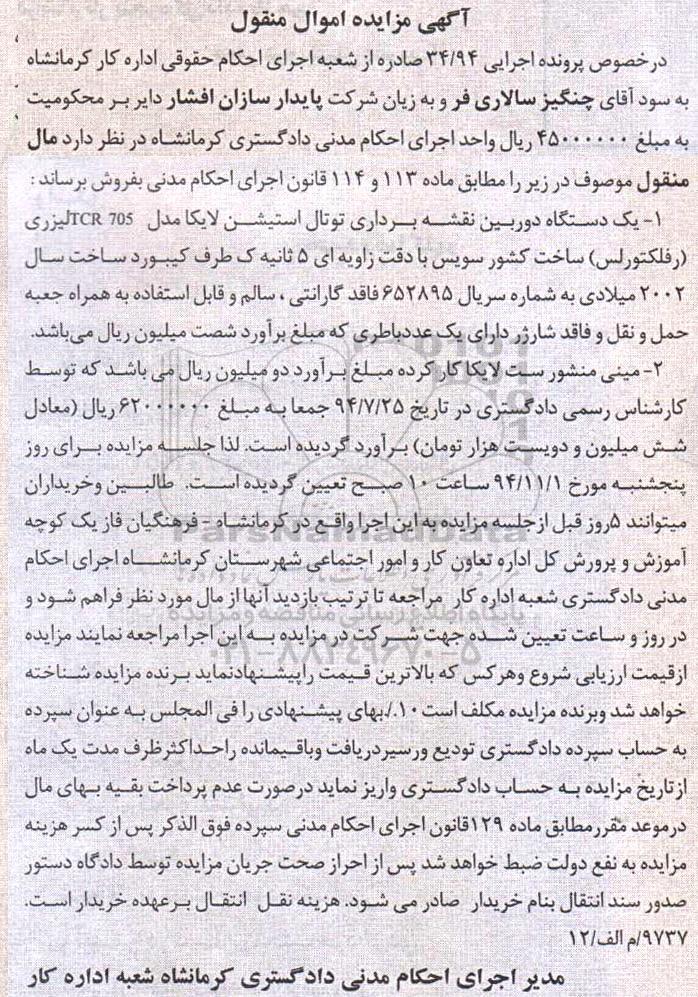 آگهی مزایده اموال منقول
درخصوص پرونده اجرایی ۳۴/۹۴ صادره از شعبه اجرای احکام حقوقی اداره کار کرمانشاه
به سود آقای چنگیز سالاری فر و به زیان شرکت پایدار سازان افشار دایر بر محکومیت
به مبلغ ۴۵۰۰۰۰۰۰ ریال واحد اجرای احکام مدنی دادگستری کرمانشاه در نظر دارد مال
منقول موصوف در زیر را مطابق ماده ۱۱۳ و ۱۱۴ قانون اجرای احکام مدنی بفروش برساند :
۱- یک دستگاه دوربین نقشه برداری توتال استیشن لایکا مدل TCR 705 لیزری
(رفلکتورلس) ساخت کشور سویس با دقت زاویه ای ۵ ثانیه ک طرف کیبورد ساخت سال
۲۰۰۲ میلادی به شماره سریال ۶۵۲۸۹۵ فاقد گارانتی ، سالم و قابل استفاده به همراه جعبه
حمل و نقل و فاقد شارژر دارای یک عددباطری که مبلغ برآورد شصت میلیون ریال می‌باشد.
۲- مینی منشور ست لایکا کار کرده مبلغ برآورد دو میلیون ریال می باشد که توسط
کارشناس رسمی دادگستری در تاریخ ۹۴/۷/۲۵ جمعا به مبلغ ۶۲۰۰۰۰۰۰ ریال (معادل
شش میلیون و دویست هزار تومان) برآورد گردیده است. لذا جلسه مزایده برای روز
پنجشنبه مورخ ۹۴/۱۱/۱ ساعت ۱۰ صبح تعیین گردیده است. طالبین وخریداران
میتوانند ۵روز قبل ازجلسه مزایده به این اجرا واقع در کرمانشاه - فرهنگیان فاز یک کوچه
آموزش و پرورش کل اداره تعاون کار و امور اجتماعی شهرستان کرمانشاه اجرای احکام
مدنی دادگستری شعبه اداره کار مراجعه تا ترتیب بازدید آنها از مال مورد نظر فراهم شود و
در روز و ساعت تعیین شده جهت شرکت در مزایده به این اجرا مراجعه نمایند مزایده
ازقیمت ارزیابی شروع وهرکس که بالاترین قیمت راپیشنهادنماید برنده مزایده شناخته
خواهد شد وبرنده مزایده مکلف است۱۰./.بهای پیشنهادی را فی المجلس به عنوان سپرده
به حساب سپرده دادگستری تودیع ورسیدریافت وباقیمانده راحداکثرظرف مدت یک ماه
ازتاریخ مزایده به حساب دادگستری واریز نماید درصورت عدم پرداخت بقیه بهای مال
درموعد مقررمطابق ماده ۱۲۹قانون اجرای احکام مدنی سپرده فوق الذکر پس از کسر هزینه
مزایده به نفع دولت ضبط خواهد شد پس از احراز صحت جریان مزایده توسط دادگاه دستور
صدور سند انتقال بنام خریدار صادر می شود. هزینه نقل انتقال برعهده خریدار است.
۹۷۳۷/م الف/۱۲
مدیر اجرای احکام مدنی دادگستری کرمانشاه شعبه اداره کار
ParsNamadData
پایگاه اطلاع رسانی مناقصه و مزایده
۰۲۱-۸۸۳۴۹۶۷۰-۵